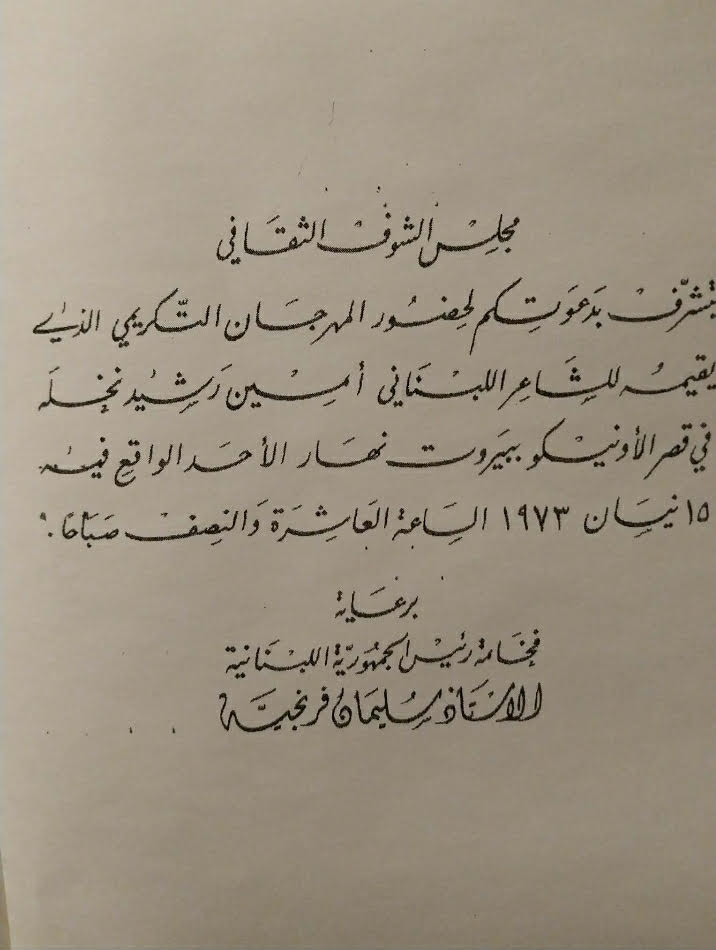 مجلس الشوف الثقافي
يتشرّف بدعوتكم لحضور المهرجان التّكريمي الذي
يقيمه للشاعر اللبناني أمين رشيد نخله
في قصر الأونيسكو ببيروت نهار الأحد الواقع فيه
١٥ نيسان ١٩٧٣ الساعة العاشرة والنصف صباحًا.
برعاية
فخامة رئيس الجمهوريّة اللبنانية
الاستاذ سليمان فرنجيّه